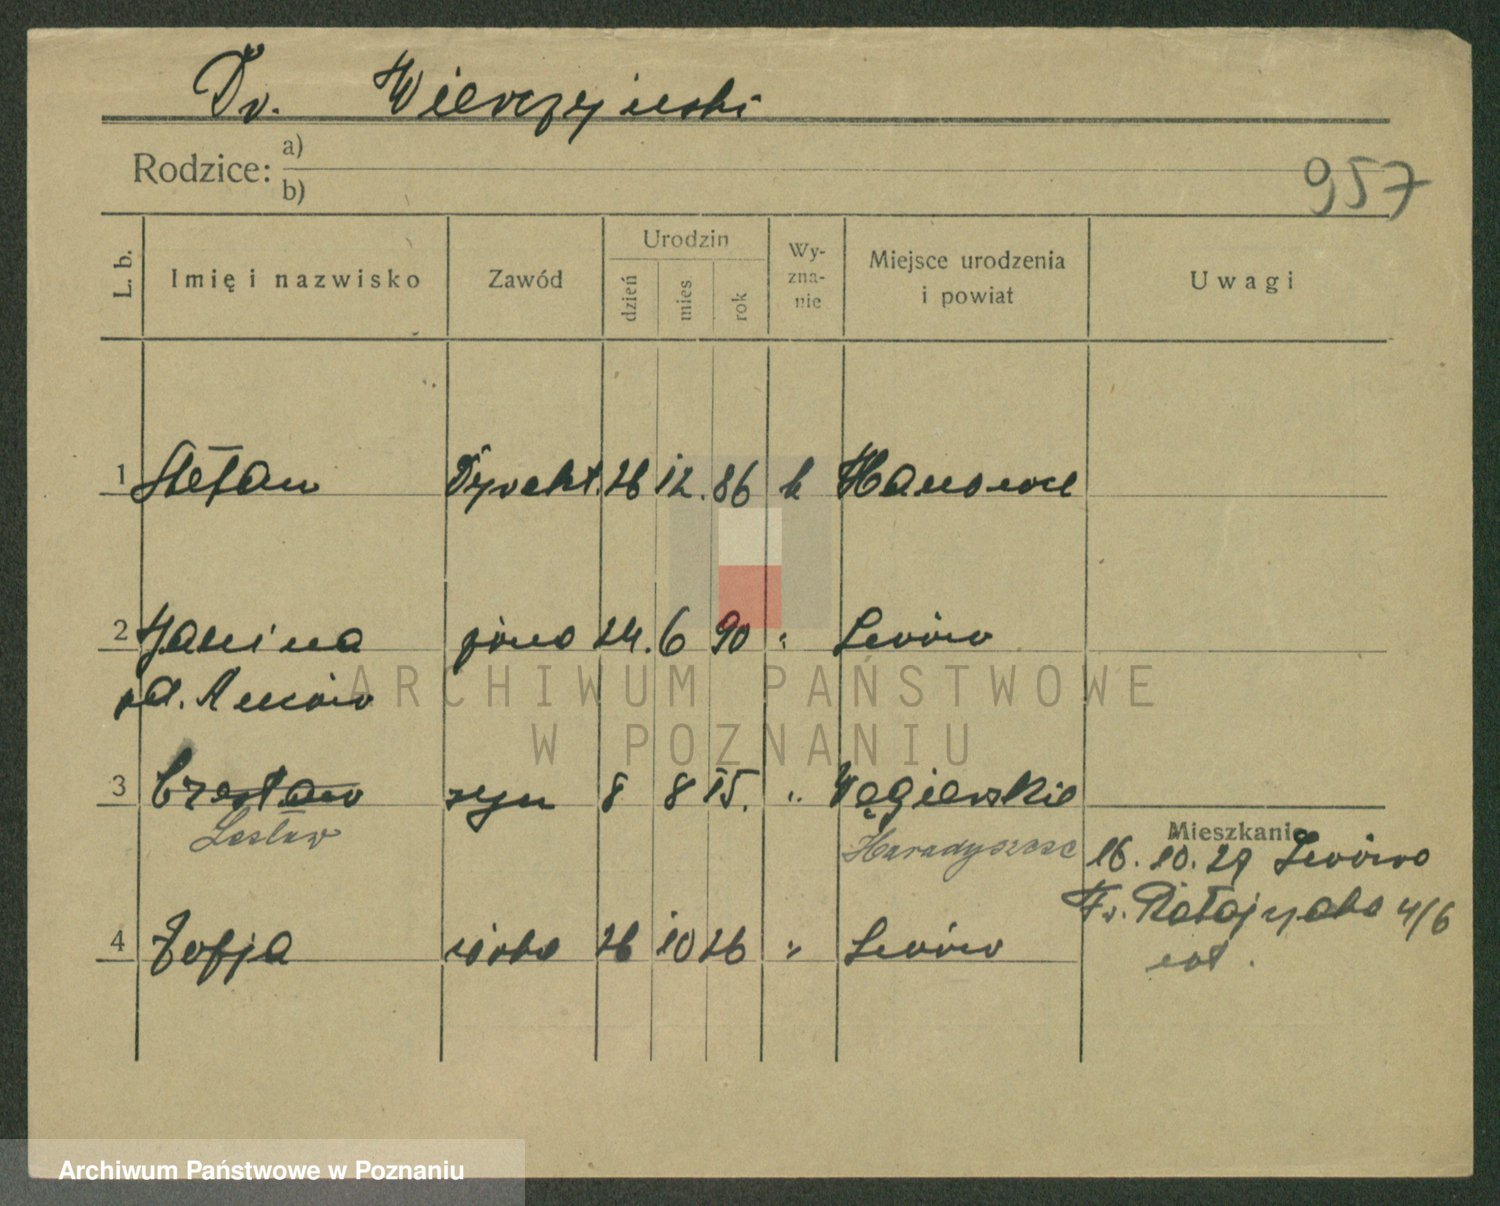 Dr. Wierczyński
Rodzice: a)
b)
957
L. b.
Imię i nazwisko
Zawód
Urodzin
dzień
mies
rok
Wy-
zna-
nie
Miejsce urodzenia
i powiat
Uwagi
1 Stefan Dyrekt. 26 12. 86 k
2 Janina żona 24. 6 90 " Lwów
ARCHIWUM PAŃSTWOWE
W POZNANIU
3 Czesław syn 8 8 15. " Węgierskie
Lesław
Mieszkanie
16. 10. 29 Lwów
4/6
4 Zofja córka 26 10 26 " Lwów
Archiwum Państwowe w Poznaniu